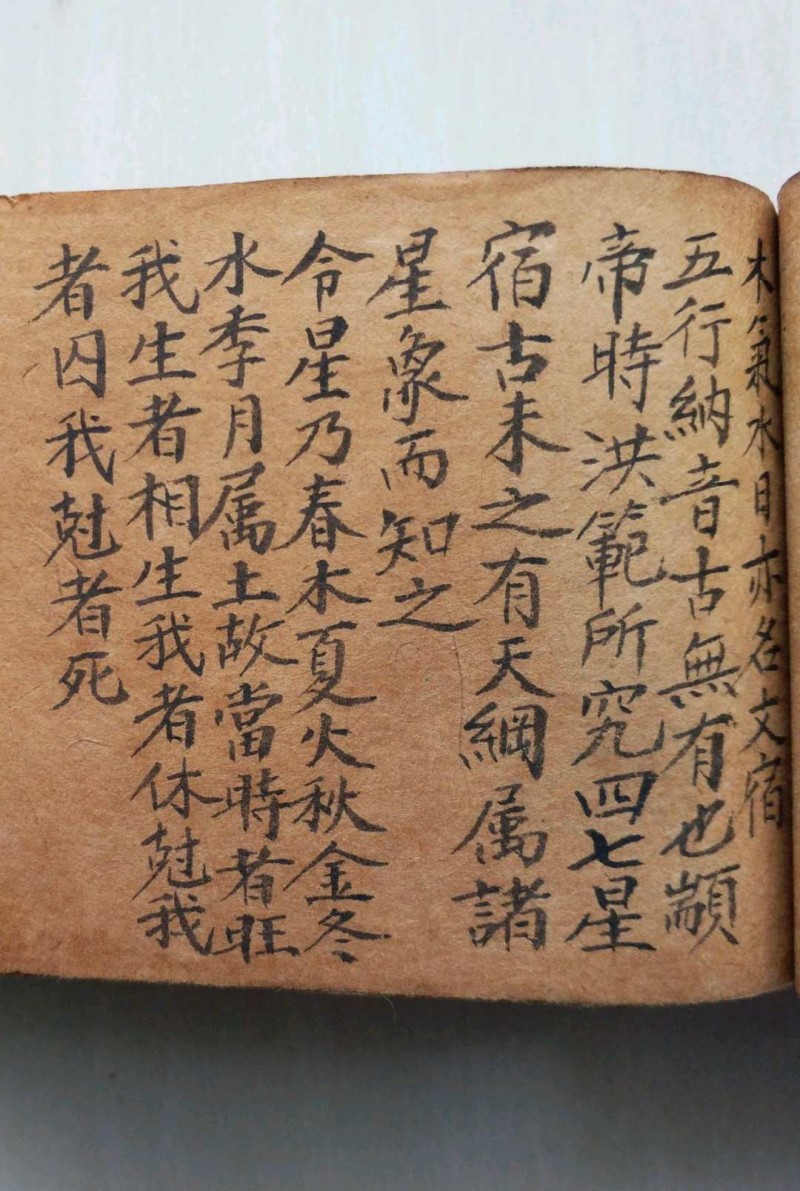 木氣水日亦名文宿
五行納音古無有也顓
帝時洪範所究四七星
宿古未之有天綱属諸
星象而知之
令星乃春木夏火秋金冬
水季月属土故當時者旺
我生者相生我者休尅我
者囚我尅者死